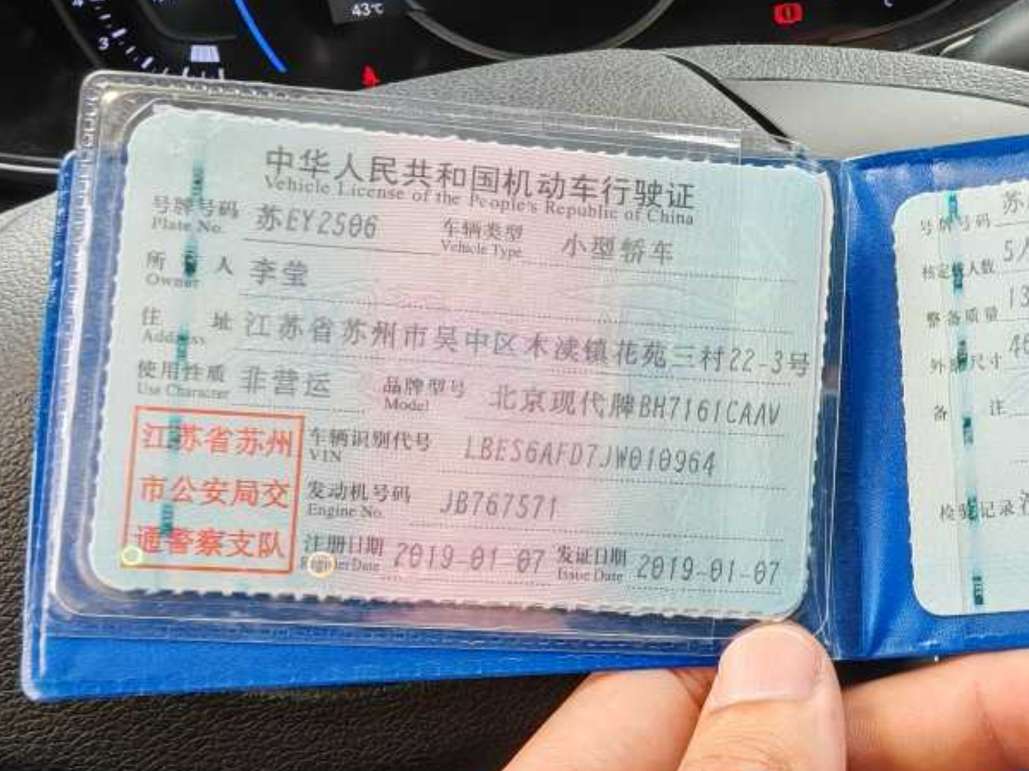 43℃
3
中华人民共和国机动车行驶证
Vehicle License of the People's Republic of China
号牌号码 苏EY2506 车辆类型 小型轿车
Plate No. Vehicle Type
所 人 李莹
Owner
住 址 江苏省苏州市吴中区木渎镇花苑三村22-3号
Address
使用性质 非营运 品牌型号 北京现代牌BH7161CAAV
Use Character Model
江苏省苏州
市公安局交
通警察支队
车辆识别代号 LBES6AFD7JW010964
VIN
发动机号码 JB767571
Engine No.
注册日期 2019-01-07 发证日期 2019-01-07
Register Date Issue Date
号牌号码 苏
核定载人数 5
整备质量
外廓尺寸
备 注
检验记录